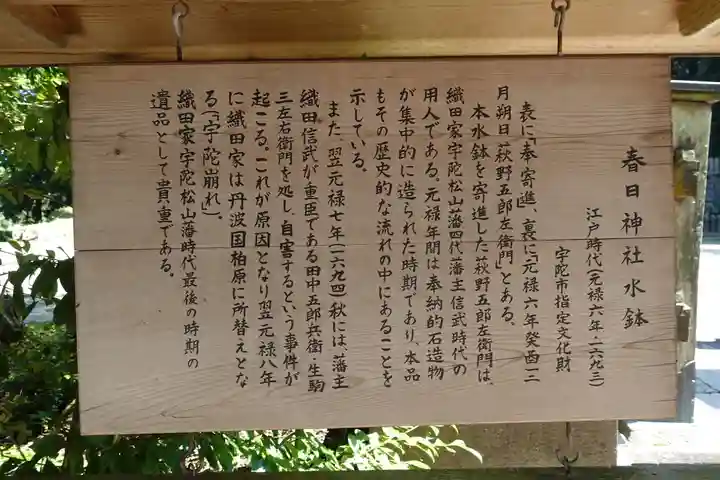 春日神社水鉢
江戸時代(元禄六年・一六九三)
宇陀市指定文化財
表に「奉寄進、裏に「元禄六年癸酉二
月朔日萩野五郎左衛門」とある。
本水鉢を寄進した萩野五郎左衛門は、
織田家宇陀松山藩四代藩主信武時代の
用人である。元禄年間は奉納的石造物
が集中的に造られた時期であり、本品
もその歴史的な流れの中にあることを
示している。
また、翌元禄七年(一六九四)秋には、藩主
織田信武が重臣である田中五郎兵衛・生駒
三左右衛門を処し、自害するという事件が
起こる。これが原因となり翌元禄八年
に織田家は丹波国柏原に所替えとな
る(「宇陀崩れ」)。
織田家宇陀松山藩時代最後の時期の
遺品として貴重である。